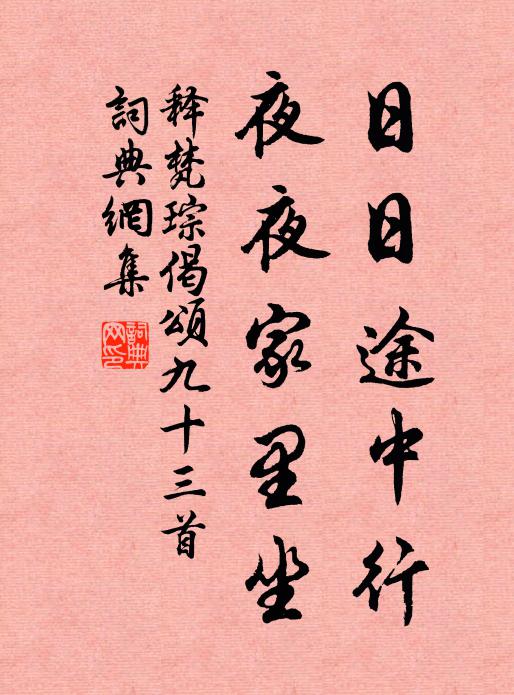 日日途中行
夜夜家里坐
释梵琮偈頌九十三首
詞典網集
詞典网印